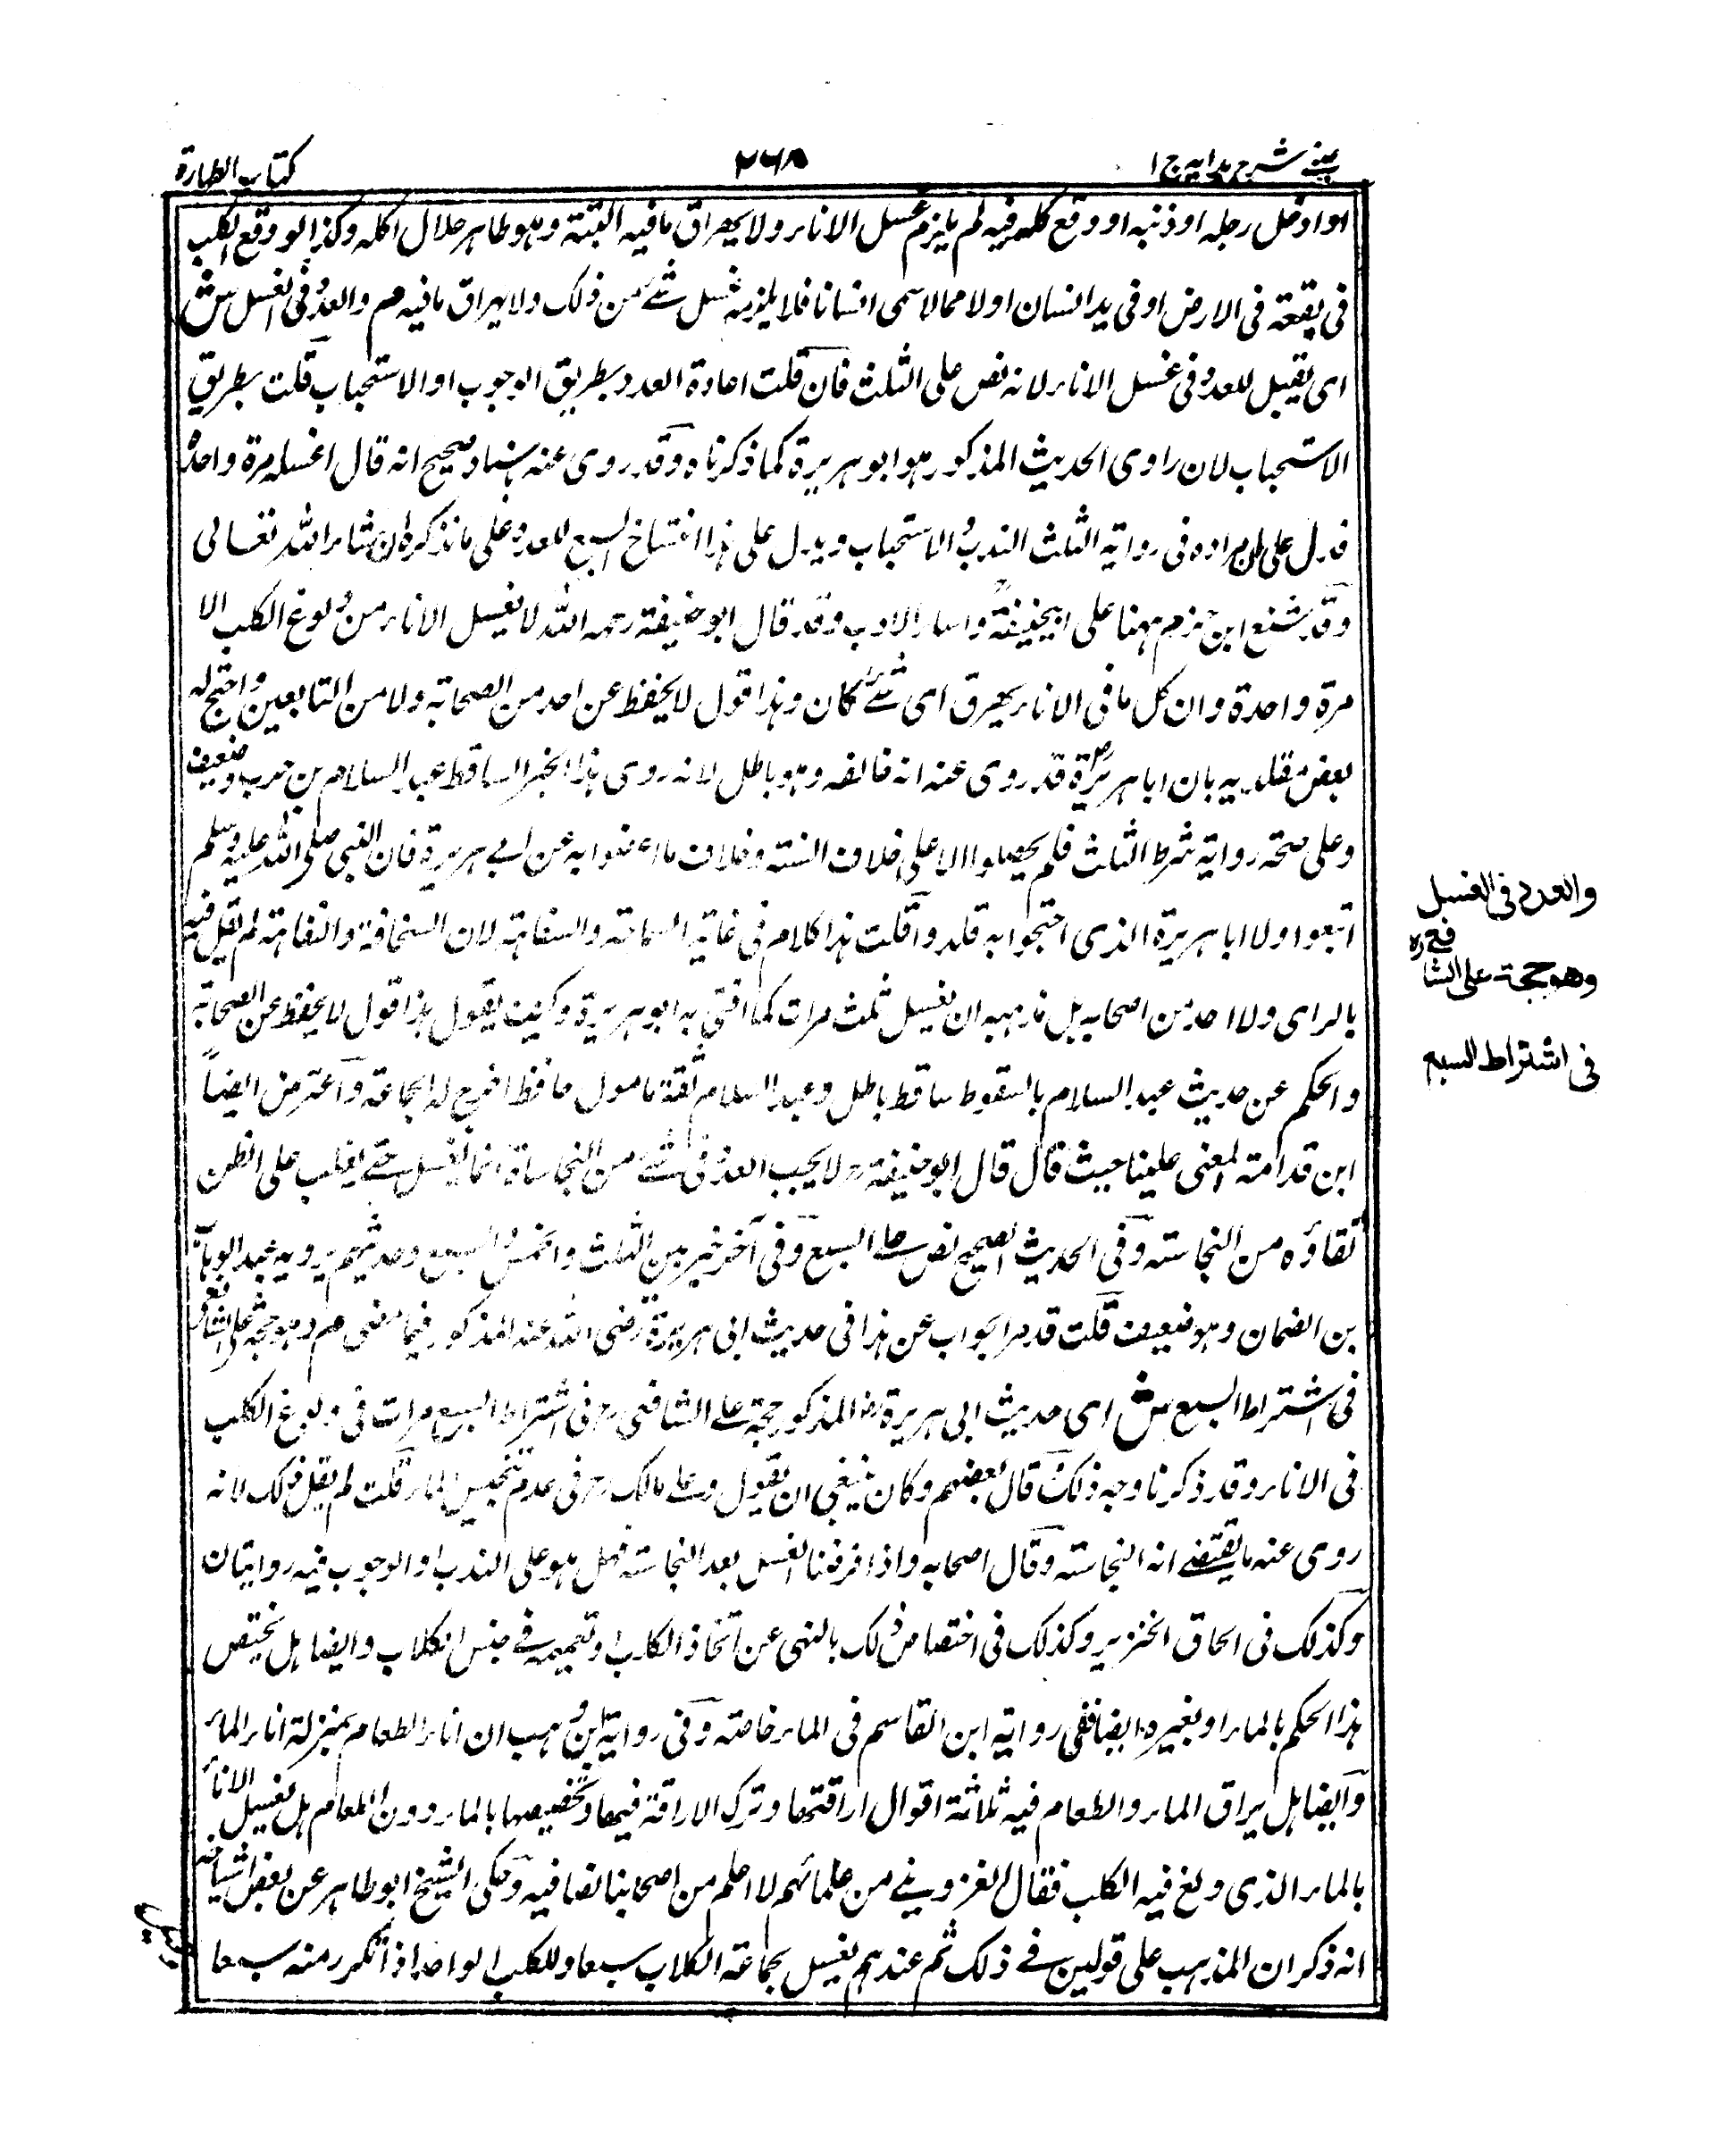 عینی شرح ہدایہ ج ا
۲۶۸
کتاب الطہارۃ
او ادخل رجله او ذنبه او وقع كله فيه لم يلزم غسل الاناء ولا يهراق ما فيه البتة وهو طاهر حلال اكله وكذا لو وقع الكلب
فى بقعة فى الارض او فى يد انسان او لا مما لا يسمى انسانا فلا يلزمه غسل شئ من ذلك ولا يهراق ما فيه م والعدد فى الغسل ش
اى يقبل للعدد فى غسل الاناء لانه نص على الثلث فان قلت اعادة العدد بطريق الوجوب او الاستحباب قلت بطريق
الاستحباب لان راوى الحديث المذكور هو ابو هريرة كما ذكرناه وقد روى عنه باسناد صحيح انه قال اغسله مرة واحدة
فدل على ان مراده فى رواية الثلث الندب والاستحباب ويدل على هذا انتساخ السبع للعدد على ما نذكره ان شاء الله تعالى
وقد شنع ابن حزم ههنا على ابيحنيفة واساء الادب وقد قال ابو حنيفة رحمه الله لا يغسل الاناء من ولوغ الكلب الا
مرة واحدة وان كل ما فى الاناء يهرق اى شئ كان وهذا قول لا يحفظ عن احد من الصحابة ولا من التابعين واحتج له
بعض مقلديه بان ابا هريرة قد روى عنه انه خالفه وهو باطل لانه روى هذا الخبر الساقط عبد السلام بن حرب وضعيف
وعلى صحة رواية شرط الثلث فلم يحصلوا الا على خلاف السنة وخلاف ما اعترضوا به عن ابى هريرة فان النبى صلى الله عليه وسلم
اتبعوا ولا ابا هريرة الذى احتجوا به قلدوا قلت هذا كلام فى غاية السماجة والسفاهة لان السخافة والتفاهة لم يقل فيه
بالراى ولا احد من اصحابه بل مذهبه ان يغسل ثلث مرات كما افتى به ابو هريرة وكيف يقول هذا قول لا يحفظ عن الصحابة
والحكم عن حديث عبد السلام بالسقوط ساقط باطل وعبد السلام ثقة مامول حافظ اخرج له الجماعة واعترض ايضاً
ابن قدامة المغنى علينا حيث قال قال ابو حنيفة رح لا يجب العدد فى شئ من النجاسات انما يغسل حتى يغلب على الظن
نقاؤه من النجاسة وفى الحديث الصحيح نص على السبع وفى آخر خير بين الثلث والخمس والسبع وحديثهم يرويه عبد الوهاب
بن الضحاك وهو ضعيف قلت قد مر الجواب عن هذا فى حديث ابى هريرة رضى الله عنه المذكور فيما مضى م وهو حجة على الشافعى
فى اشتراط السبع ش اى حديث ابى هريرة رض المذكور حجة على الشافعى رح فى اشتراط السبع مرات فى ولوغ الكلب
فى الاناء وقد ذكرنا وجه ذلك قال بعضهم وكان ينبغى ان يقول وعلى مالك رح فى عدم تنجيس الماء قلت لم يقل ذلك لانه
روى عنه ما يقتضى انه النجاسة وقال اصحابه واذا فرغنا الغسل بعد النجاسة فهل هو على الندب او الوجوب فيه روايتان
وكذلك فى الحاق الخنزير وكذلك فى اختصاص ذلك بالنهى عن اتخاذ الكلب او تعميمه فى جنس الكلاب وايضا هل يختص
هذا الحكم بالماء او بغيره ايضا ففى رواية ابن القاسم فى الماء خاصة وفى رواية ابن وهب ان اناء الطعام بمنزلة اناء الماء
وايضا هل يراق الماء والطعام فيه ثلاثة اقوال اراقتهما وترك الاراقة فيهما وتخصيصها بالماء دون الطعام هل يغسل الاناء
بالماء الذى ولغ فيه الكلب فقال الغزوينى من علمائهم لا اعلم من اصحابنا نصا فيه وحكى الشيخ ابو طاهر عن بعض اشياخه
انه ذكر ان المذهب على قولين فى ذلك ثم عندهم يغسل بجماعة الكلاب سبعا وللكلب الواحد اذا تكرر منه سبعا
والعدد فى الغسل
وهو حجة على الشافعى رہ
فى اشتراط السبع